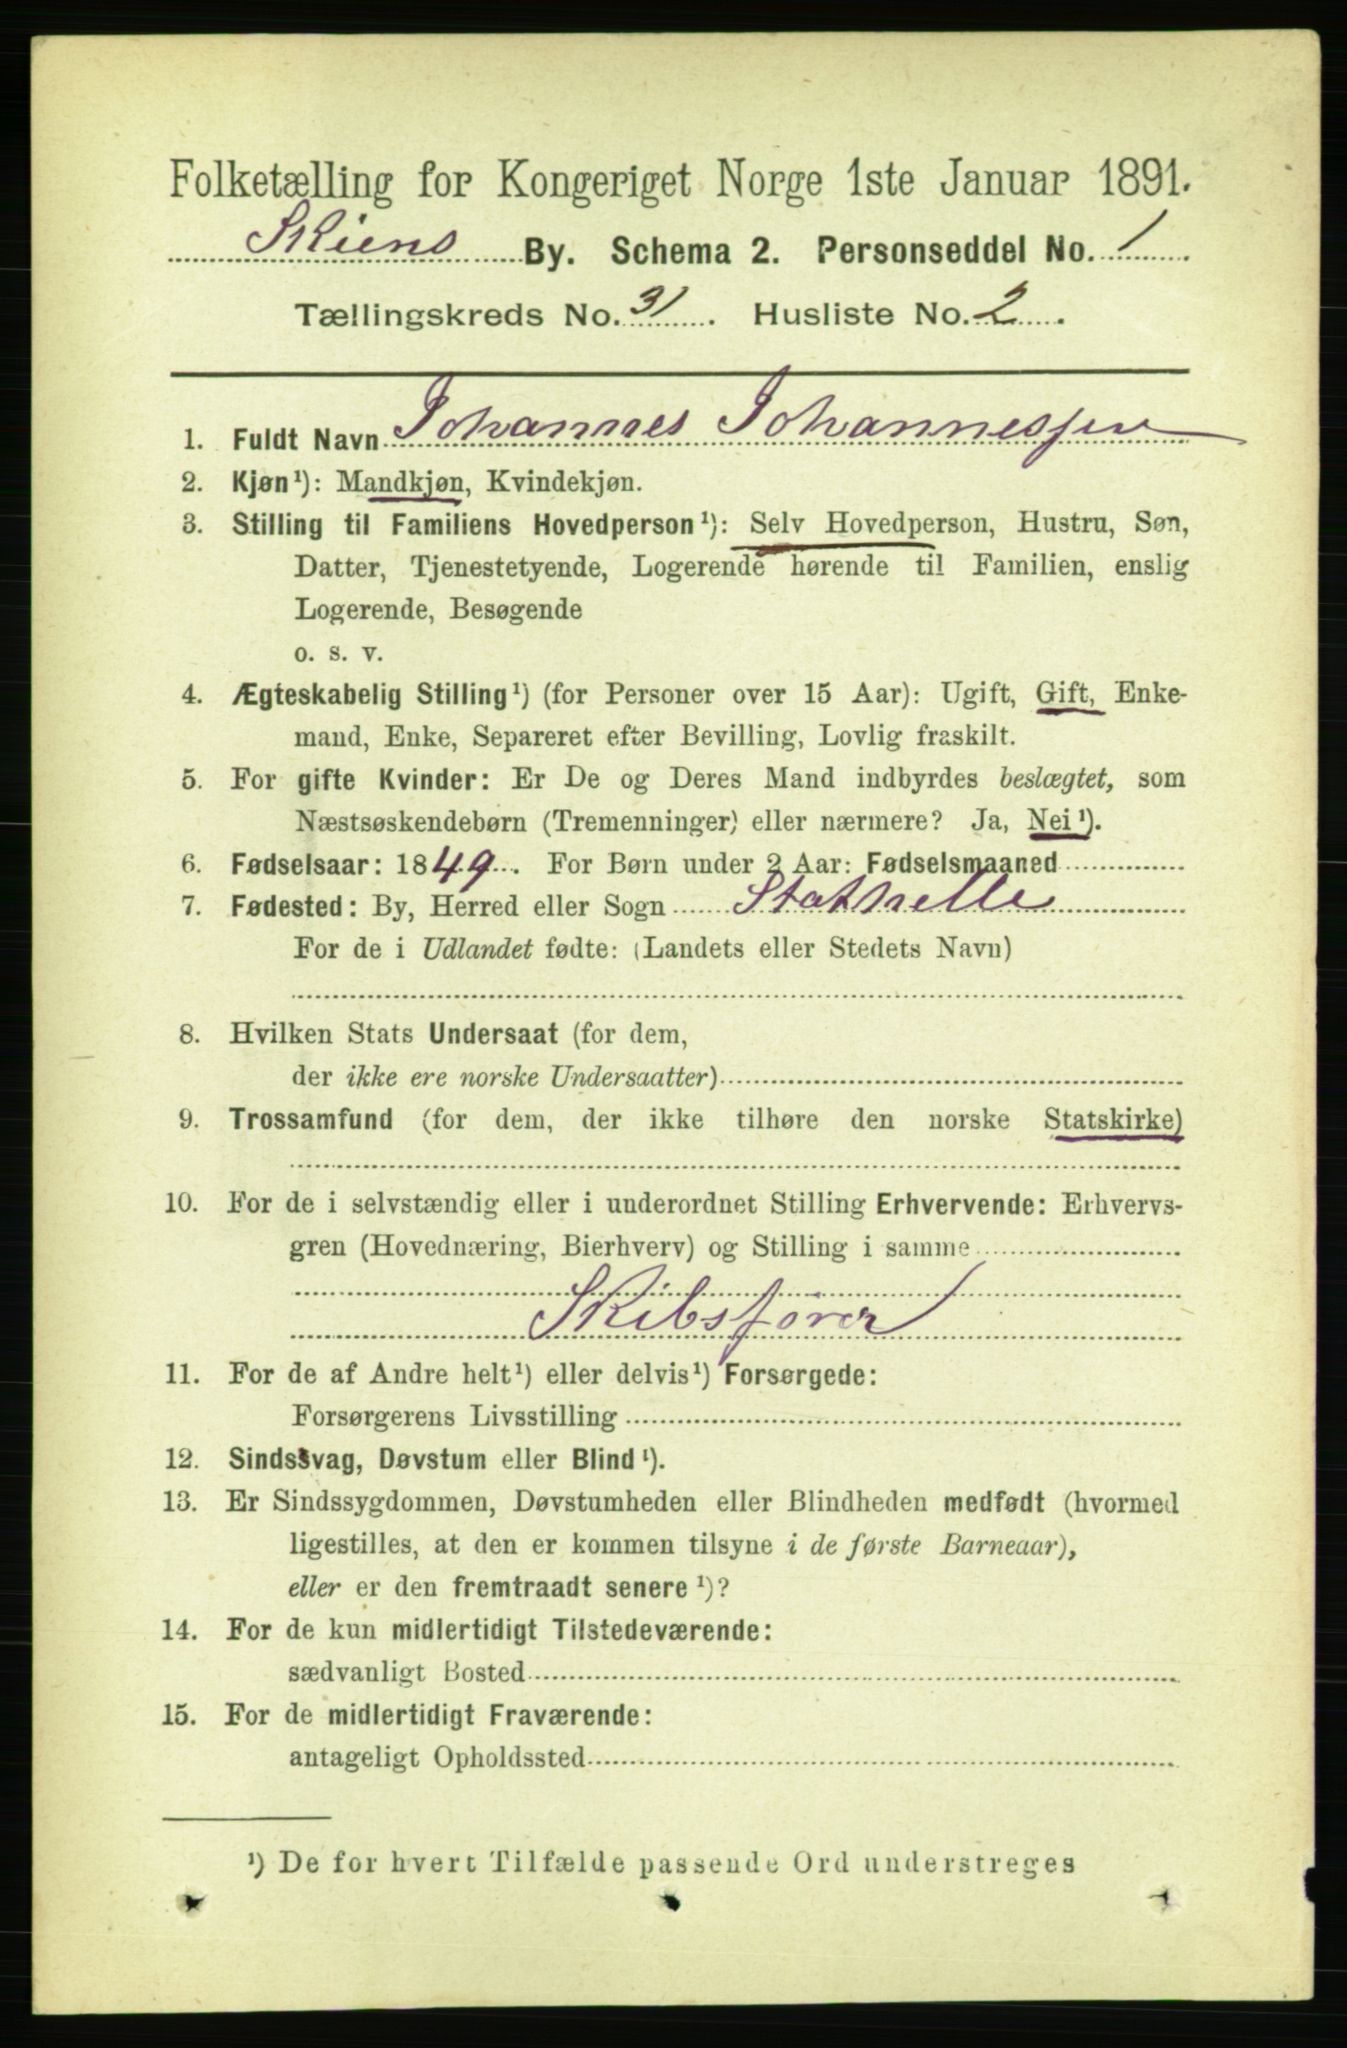 Folketælling for Kongeriget Norge 1ste Januar 1891.
Skiens By. Schema 2. Personseddel No. 1
Tællingskreds No. 31. Husliste No. 2.
1. Fuldt Navn Johannes Johannessen
2. Kjøn¹): Mandkjøn, Kvindekjøn.
3. Stilling til Familiens Hovedperson¹): Selv Hovedperson, Hustru, Søn,
Datter, Tjenestetyende, Logerende hørende til Familien, enslig
Logerende, Besøgende
o. s. v.
4. Ægteskabelig Stilling¹) (for Personer over 15 Aar): Ugift, Gift, Enke-
mand, Enke, Separeret efter Bevilling, Lovlig fraskilt.
5. For gifte Kvinder: Er De og Deres Mand indbyrdes beslægtet, som
Næstsøskendebørn (Tremenninger) eller nærmere? Ja, Nei¹).
6. Fødselsaar: 1849. For Børn under 2 Aar: Fødselsmaaned
7. Fødested: By, Herred eller Sogn Stathelle
For de i Udlandet fødte: (Landets eller Stedets Navn)
8. Hvilken Stats Undersaat (for dem,
der ikke ere norske Undersaatter)
9. Trossamfund (for dem, der ikke tilhøre den norske Statskirke)
10. For de i selvstændig eller i underordnet Stilling Erhvervende: Erhvervs-
gren (Hovednæring, Bierhverv) og Stilling i samme
Skibsfører
11. For de af Andre helt¹) eller delvis¹) Forsørgede:
Forsørgerens Livsstilling
12. Sindssvag, Døvstum eller Blind¹).
13. Er Sindssygdommen, Døvstumheden eller Blindheden medfødt (hvormed
ligestilles, at den er kommen tilsyne i de første Barneaar),
eller er den fremtraadt senere¹)?
14. For de kun midlertidigt Tilstedeværende:
sædvanligt Bosted
15. For de midlertidigt Fraværende:
antageligt Opholdssted
¹) De for hvert Tilfælde passende Ord understreges